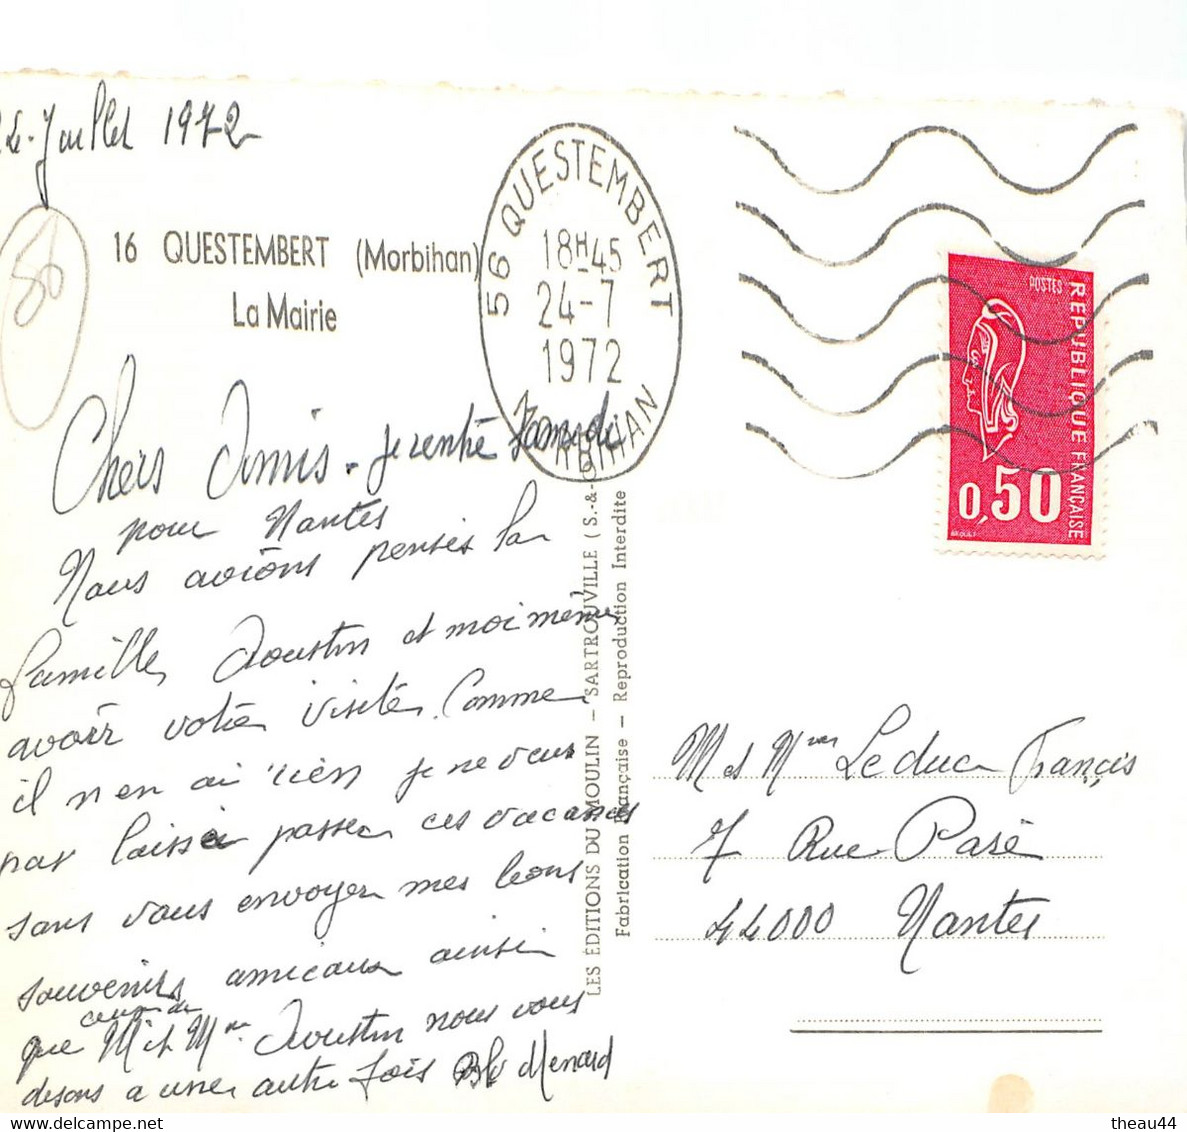 24 - Juillet 1972
56
16 QUESTEMBERT (Morbihan)
La Mairie
56 QUESTEMBERT
18H-45
24-7
1972
MORBIHAN
POSTES
REPUBLIQUE FRANÇAISE
0,50
Chers Amis. je rentre samedi
pour Nantes
Nous avions pensés la
famille Aoustin et moi même
avoir votre visite. Comme
il n'en ai rien je ne veux
pas laisser passer ces vacances
sans vous envoyer mes bons
souvenirs amicaux ainsi
ceux de
que M et Mme Aoustin nous vous
disons a une autre fois Menard
LES ÉDITIONS DU MOULIN – SARTROUVILLE (S.-&-
Fabrication Française – Reproduction Interdite
M et Mme Leduc Francis
7 Rue Paré
44000 Nantes
theau44